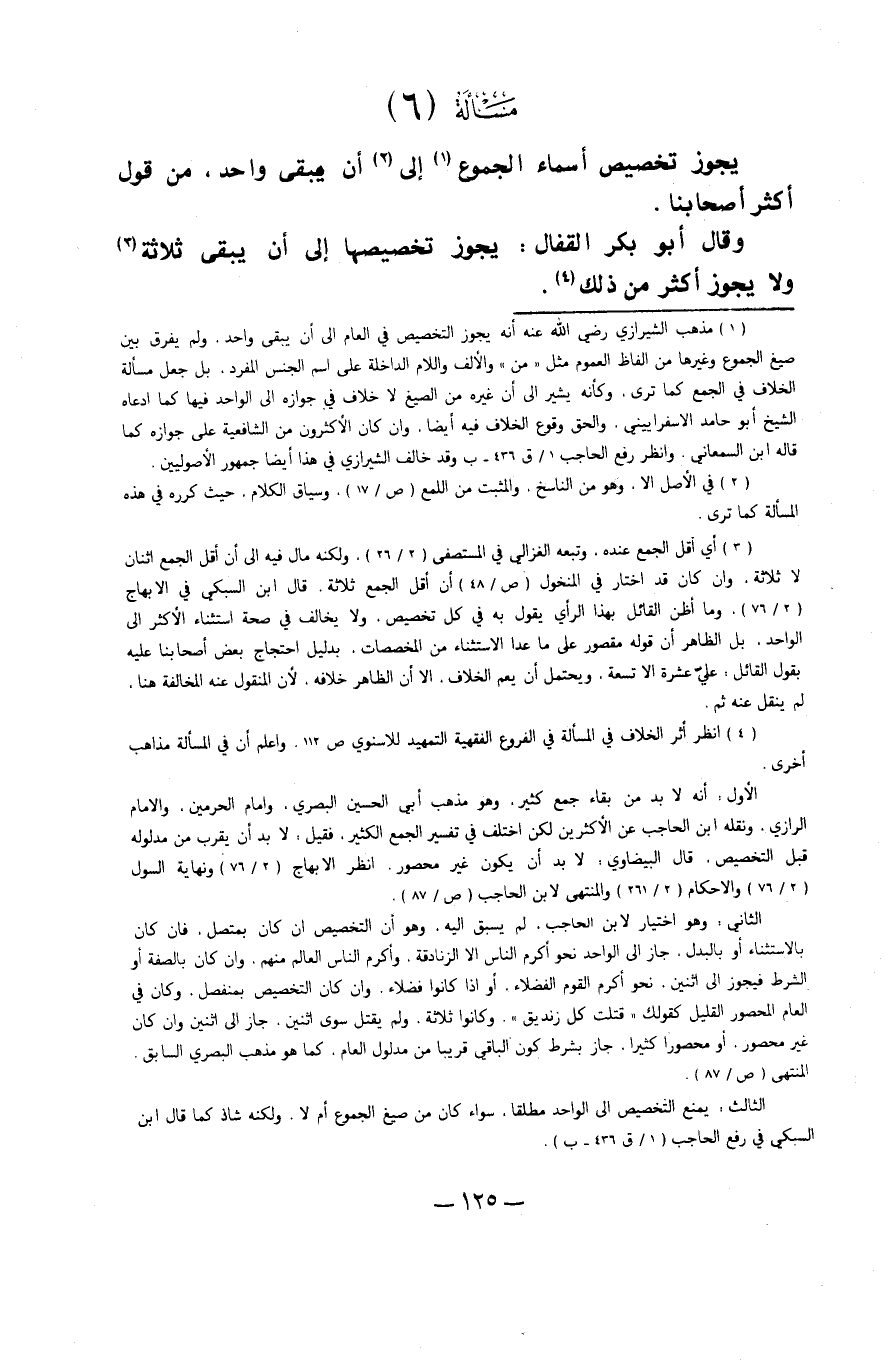 مسألة (٦)
يجوز تخصيص أسماء الجموع (١) إلى (٢) أن يبقى واحد ، من قول
أكثر أصحابنا .
وقال أبو بكر القفال : يجوز تخصيصها إلى أن يبقى ثلاثة (٣)
ولا يجوز أكثر من ذلك (٤) .
( ١ ) مذهب الشيرازي رضي الله عنه أنه يجوز التخصيص في العام الى أن يبقى واحد . ولم يفرق بين
صيغ الجموع وغيرها من الفاظ العموم مثل « من » والألف واللام الداخلة على اسم الجنس المفرد . بل جعل مسألة
الخلاف في الجمع كما ترى . وكأنه يشير الى أن غيره من الصيغ لا خلاف في جوازه الى الواحد فيها كما ادعاه
الشيخ أبو حامد الاسفراييني . والحق وقوع الخلاف فيه أيضا . وان كان الأكثرون من الشافعية على جوازه كما
قاله ابن السمعاني . وانظر رفع الحاجب ١ / ق ٤٣٦ ـ ب وقد خالف الشيرازي في هذا أيضا جمهور الأصوليين .
( ٢ ) في الأصل الا . وهو من الناسخ . والمثبت من اللمع ( ص / ١٧ ) . وسياق الكلام . حيث كرره في هذه
المسألة كما ترى .
( ٣ ) أي أقل الجمع عنده . وتبعه الغزالي في المستصفى ( ٢ / ٢٦ ) . ولكنه مال فيه الى أن أقل الجمع اثنان
لا ثلاثة . وان كان قد اختار في المنخول ( ص / ٤٨ ) أن أقل الجمع ثلاثة . قال ابن السبكي في الابهاج
( ٢ / ٧٦ ) . وما أظن القائل بهذا الرأي يقول به في كل تخصيص . ولا يخالف في صحة استثناء الأكثر الى
الواحد . بل الظاهر أن قوله مقصور على ما عدا الاستثناء من المخصصات . بدليل احتجاج بعض أصحابنا عليه
بقول القائل : عليّ عشرة الا تسعة . ويحتمل أن يعم الخلاف . الا أن الظاهر خلافه . لأن المنقول عنه المخالفة هنا .
لم ينقل عنه ثم .
( ٤ ) انظر أثر الخلاف في المسألة في الفروع الفقهية التمهيد للاسنوي ص ١١٢ . واعلم أن في المسألة مذاهب
أخرى .
الأول : أنه لا بد من بقاء جمع كثير . وهو مذهب أبي الحسين البصري . وامام الحرمين . والامام
الرازي . ونقله ابن الحاجب عن الأكثرين لكن اختلف في تفسير الجمع الكثير . فقيل : لا بد أن يقرب من مدلوله
قبل التخصيص . قال البيضاوي : لا بد أن يكون غير محصور . انظر الابهاج ( ٢ / ٧٦ ) ونهاية السول
( ٢ / ٧٦ ) والاحكام ( ٢ / ٢٦١ ) والمنتهى لابن الحاجب ( ص / ٨٧ ) .
الثاني : وهو اختيار لابن الحاجب . لم يسبق اليه . وهو أن التخصيص ان كان بمتصل . فان كان
بالاستثناء أو بالبدل . جاز الى الواحد نحو أكرم الناس الا الزنادقة . وأكرم الناس العالم منهم . وان كان بالصفة أو
الشرط فيجوز الى اثنين . نحو أكرم القوم الفضلاء . أو اذا كانوا فضلاء . وان كان التخصيص بمنفصل . وكان في
العام المحصور القليل كقولك « قتلت كل زنديق » . وكانوا ثلاثة . ولم يقتل سوى اثنين . جاز الى اثنين وان كان
غير محصور . أو محصورا كثيرا . جاز بشرط كون الباقي قريبا من مدلول العام . كما هو مذهب البصري السابق .
المنتهى ( ص / ٨٧ ) .
الثالث : يمنع التخصيص الى الواحد مطلقا . سواء كان من صيغ الجموع أم لا . ولكنه شاذ كما قال ابن
السبكي في رفع الحاجب ( ١ / ق ٤٣٦ ـ ب ) .
ـ ١٢٥ ـ